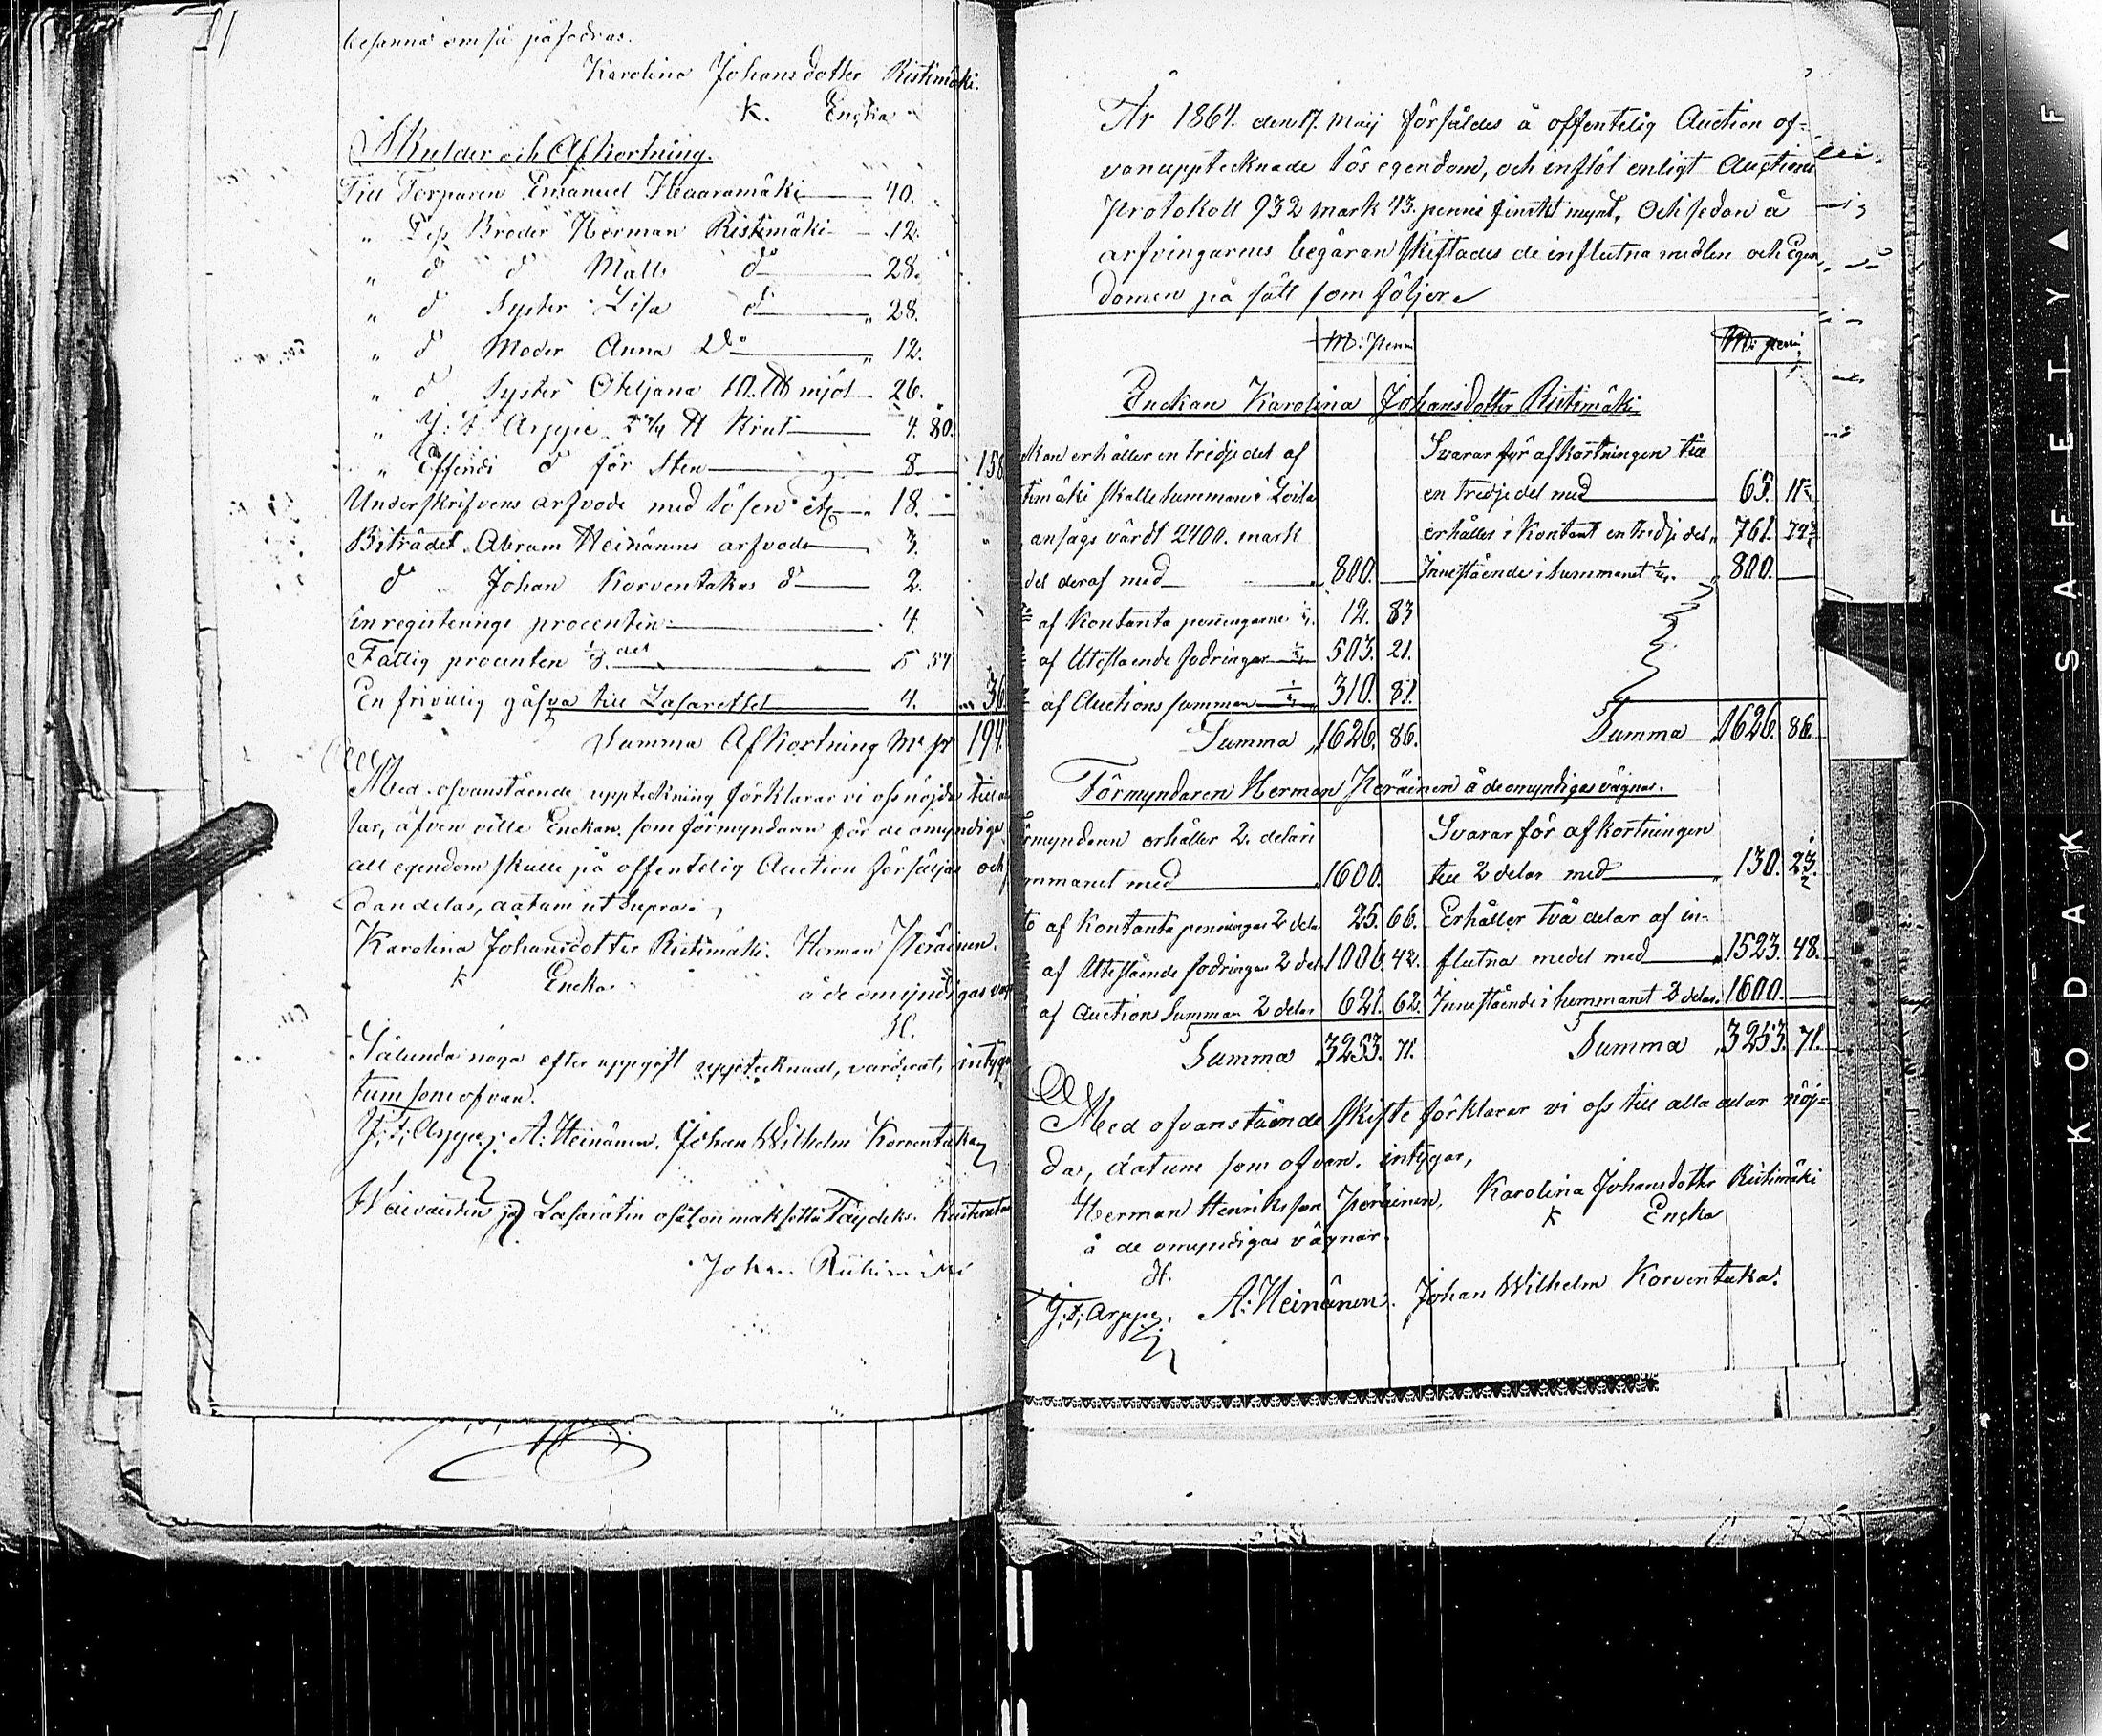 besanna om så påfodras.
Karolina Johansdotter Ristimäki.
K. Enka
Skulder och Afkortning.
Till Torparen Emanuel Haaramäki 40.
" Dess Broder Herman Ristimäki 12.
" d d Matts do 28.
" d Syster Lisa d " 28.
" d Moder Anna Do " 12.
" d Syster Otteljana 10. ℔ mjöl 26.
" J: F: Arppe 2 2/4 ℔ Krut 4. 80.
" d för Sten 8 158
Underskrifvens arfvode med lösen etc 18.
Biträdet Abram Heinänens arfvode 3.
d Johan Korventakas do 2.
Enregisterings procenten 4.
Fattig procenten 1/8 del 5 57
En frivillig gåfva till Lasarettet 4. 36
Summa Afkortning Mk pi 194.
Med ofvanstående uppteckning förklarar vi oss nöjda till
lar, äfven ville Enckan som förmyndaren för de omyndige
all egendom skulle på offentelig Auction försäljas och
dan delas, datum ut Supra.
Karolina Johansdotter Ristimäki. Herman Peräinen.
K Encka. å de omyndigas väg
H.
Sålunda noga efter uppgift upptecknadt, värderat, intyga
tum som ofvan.
J; F; Arppe. A: Heinänen. Johan Wilhelm Korventaka
Waivaistin ja Lasarätin osat on maksettu Täydeks. kuiteratan
Johan Riihimäki
År 1864. den 17. Maij försåldes å offentelig Auction of-
vanupptecknade lös egendom, och inflöt enligt Auctions
Protokoll 932 mark 43. penni finskt mynt, Och sedan å
arfvingarnes begäran skiftades de influtna medlen och Egen
domen på sätt som följer.
M: Penni M: peni
Enckan Karolina Johansdotter Ristimäki
kan erhåller en tredjedel af Svarar för afkortningen till
timäki Skatte hemman i Loila en tredjedel med 65. 11½
ansågs värdt 2400. mark erhåller i Kontant en tredje del " 761. 74½
del deraf med " 800. Innestående i hemmanet ⅓. " 800.
af Kontanta penningarne ⅓. 12. 83
af Utestående fodringar ⅓ 503. 21.
af Auctions summan ⅓ 310. 81.
Summa " 1626. 86. Summa " 1626. 86.
Förmyndaren Herman Peräinen å de omyndigas vägnar.
rmyndaren erhåller 2 delar i Svarar för afkortningen
mmanet med " 1600. till 2 delar med " 130. 23.
to af Kontanta penningar 2 dela 25. 66. Erhåller två delar af in-
af Utestående fodringar 2 del 1006. 42. flutna medel med " 1523. 48.
af Auctions Summan 2 delar 621. 62. Innestående i hemmanet 2 delar. 1600.
Summa " 3253. 71. Summa " 3253. 71.
Med ofvanstående skifte förklarar vi oss till alla delar nöj-
da, datum som ofvan. intygar,
Herman Henriksson Peräinen, Karolina Johansdotter Ristimäki
å de omyndigas vägnar. K Encka
H.
J; F; Arppe. A: Heinänen. Johan Wilhelm Korventaka.
KODAK SAFETY ▲ F